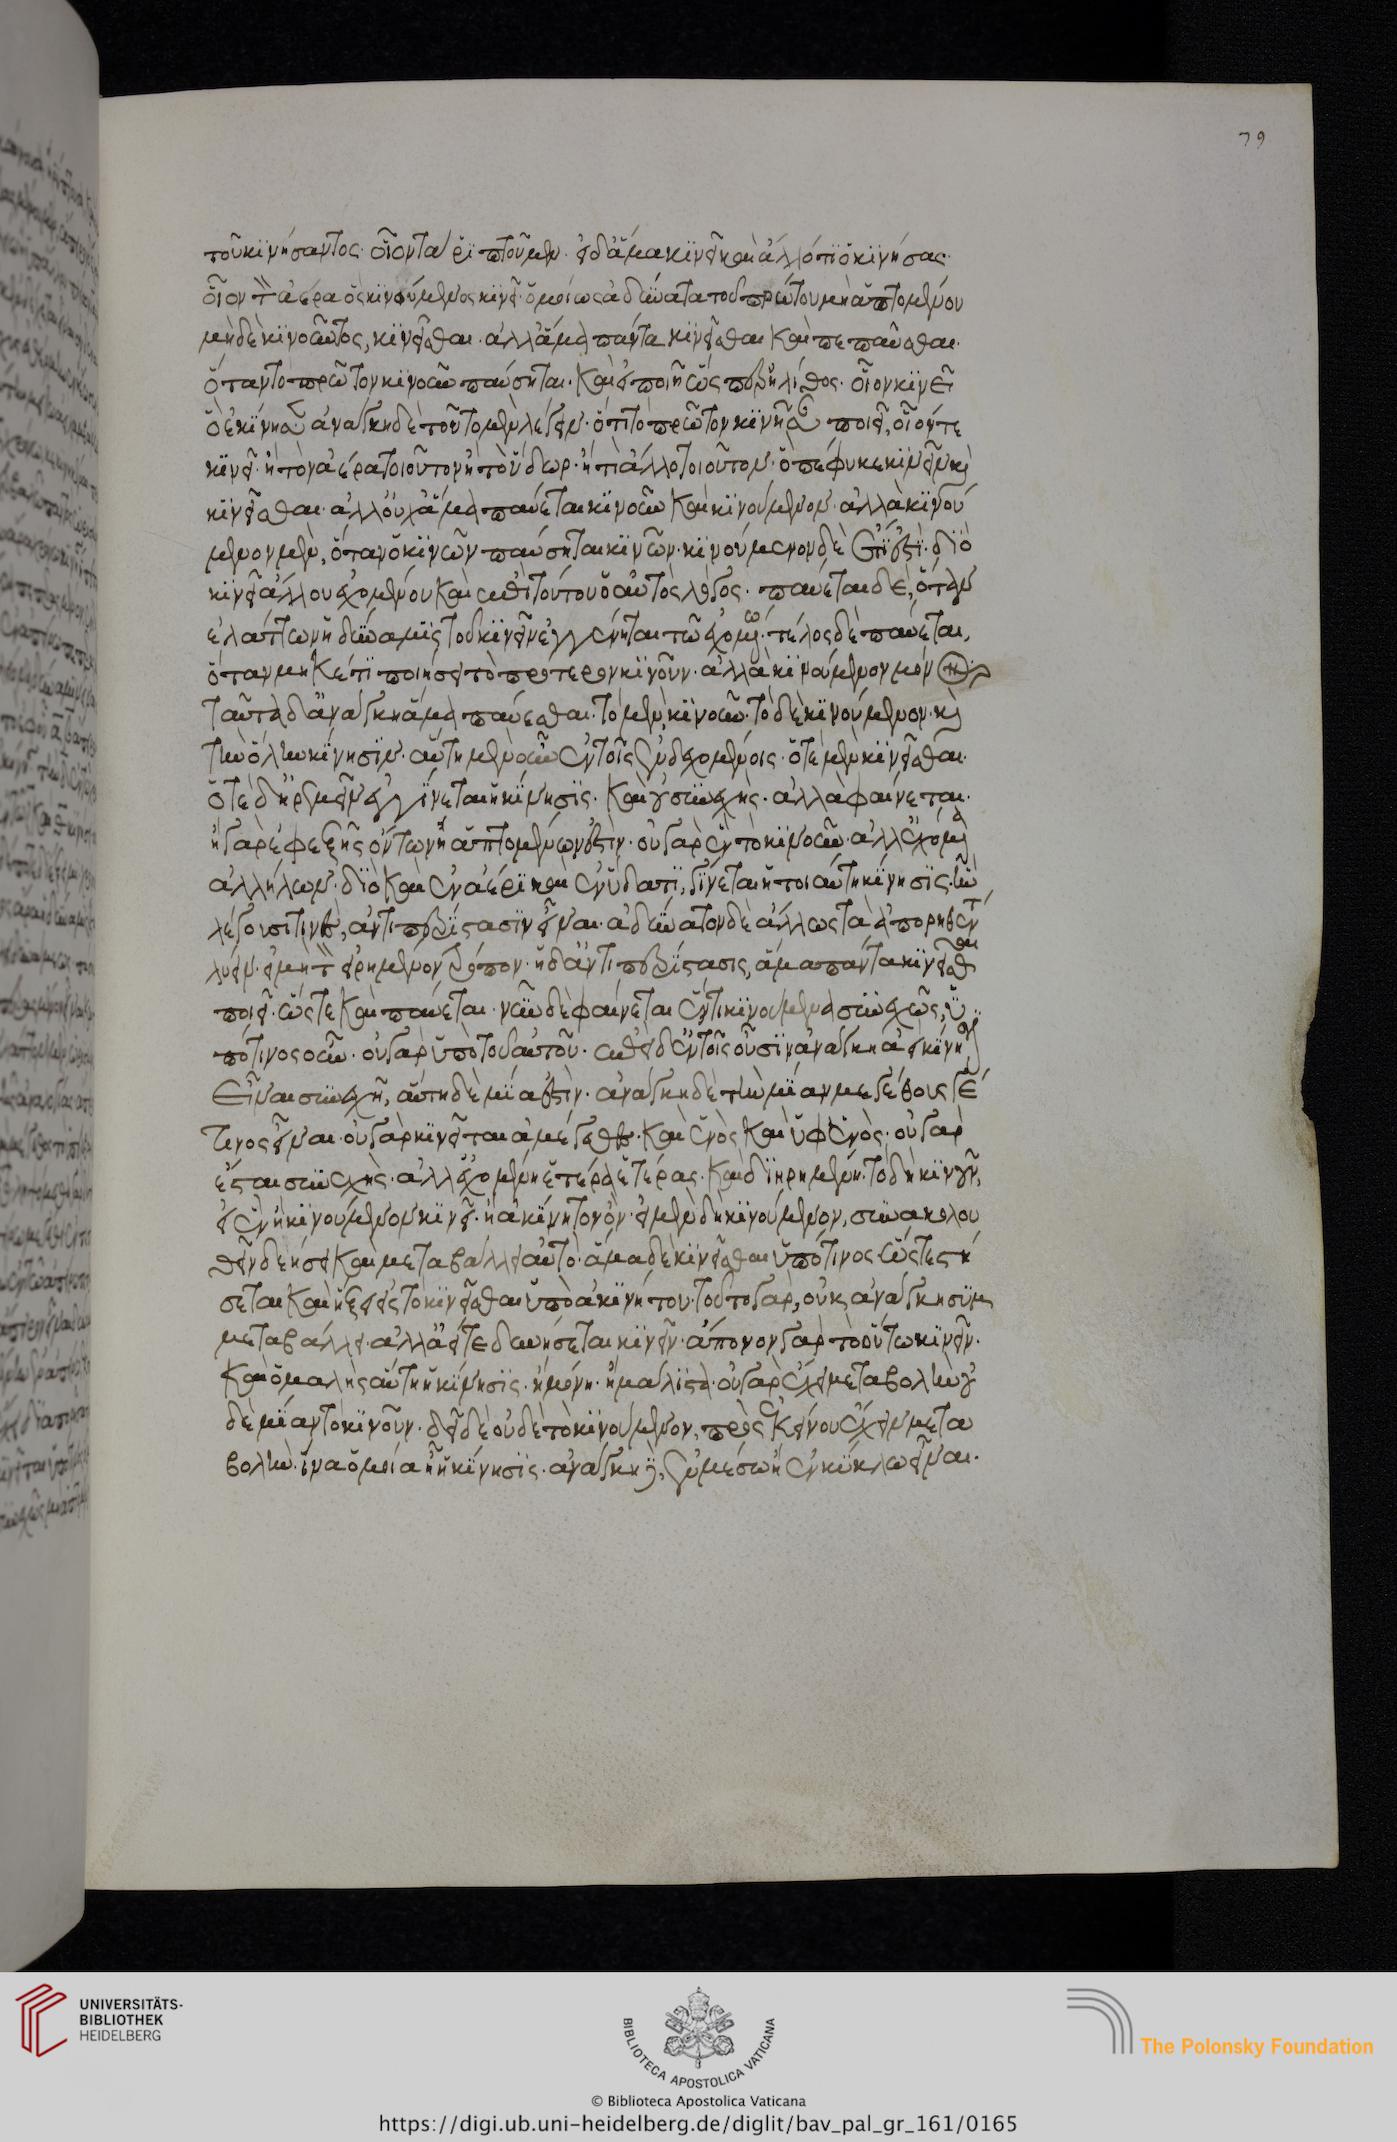 τοῦ κινήσαντος· οἷον τὰ ῥιπτούμενα· εἰ δ' ἅμα κινεῖ καὶ ἄλλό τι ὁ κινήσας·
οἷον τὸν ἀέρα ὃς κινούμενος κινεῖ· ὁμοίως ἀδύνατα τοῦ πρώτου μὴ ἁπτομένου
μηδὲ κινοῦντος, κινεῖσθαι· ἀλλ' ἅμα πάντα κινεῖσθαι καὶ πεπαῦσθαι·
ὅταν τὸ πρῶτον κινοῦν παύσηται· καὶ εἰ ποιεῖ ὥσπερ ἡ λίθος· οἷον κινεῖ
ὃ ἐκίνησεν ἀνάγκη δὲ τοῦτο μὲν λέγειν· ὅτι τὸ πρῶτον κινῆσαν ποιεῖ, οἷόν τε
κινεῖν· ἢ τὸν ἀέρα τοιοῦτον ἢ τὸ ὕδωρ· ἤ τι ἄλλο τοιοῦτον· ὃ πέφυκε κινεῖν καὶ
κινεῖσθαι· ἀλλ' οὐχ ἅμα παύεται κινοῦν καὶ κινούμενον· ἀλλὰ κινού
μενον μὲν, ὅταν ὁ κινῶν παύσηται κινῶν· κινούμενον δὲ ἔτι ἐστί· διὸ
κινεῖ ἄλλου ἐχομένου καὶ ἐπὶ τούτου ὁ αὐτὸς λόγος· παύεται δὲ, ὅταν
ἐλάττων ἡ δύναμις τοῦ κινεῖν ἐγγένηται τῷ ἐχομένῳ· τέλος δὲ παύεται,
ὅταν μηκέτι ποιήσει τὸ πρότερον κινοῦν· ἀλλὰ κινούμενον μόνον
ταῦτα δ' ἀνάγκη ἅμα παύεσθαι· τὸ μὲν κινοῦν· τὸ δὲ κινούμενον· καὶ
τὴν ὅλην κίνησιν· αὕτη μὲν οὖν ἐν τοῖς ἐνδεχομένοις· ὁτὲ μὲν κινεῖσθαι·
ὁτὲ δ' ἠρεμεῖν ἐγγίνεται ἡ κίνησις· καὶ οὐ συνεχής· ἀλλὰ φαίνεται·
ἢ γὰρ ἐφεξῆς ὄντων ἢ ἁπτομένων ἐστίν· οὐ γὰρ ἓν τὸ κινοῦν· ἀλλ' ἐχόμενα
ἀλλήλων· διὸ καὶ ἐν ἀέρι καὶ ἐν ὕδατι, γίνεται ἡ τοιαύτη κίνησις· ἣν
λέγουσί τινες, ἀντιπερίστασιν εἶναι· ἀδύνατον δὲ ἄλλως τὰ ἀπορηθέντα
λύειν· εἰ μὴ τὸν εἰρημένον τρόπον· ἡ δ' ἀντιπερίστασις, ἅμα πάντα κινεῖσθαι
ποιεῖ· ὥστε καὶ παύεται· νῦν δὲ φαίνεται ἕν τι κινούμενα συνεχῶς, ὑ
πό τινος οὖν· οὐ γὰρ ὑπὸ τοῦ αὐτοῦ· ἐπεὶ δ' ἐν τοῖς οὖσιν ἀνάγκη ἀεὶ κίνησιν
εἶναι συνεχῆ, αὕτη δὲ μία ἐστίν· ἀνάγκη δὲ τὴν μίαν μεγέθους γέ
τινος εἶναι· οὐ γὰρ κινεῖται ἀμέγεθες· καὶ ἑνὸς καὶ ὑφ' ἑνὸς· οὐ γὰρ
ἔσται συνεχὴς· ἀλλ' ἐχομένη ἑτέρα ἑτέρας· καὶ διηρημένη· τὸ δὴ κινοῦν,
εἰ ἕν, ἢ κινούμενον κινεῖ· ἢ ἀκίνητον ὄν· εἰ μὲν δὴ κινούμενον, συνακολου
θεῖν δεήσει καὶ μεταβάλλειν αὐτὸ· ἅμα δὲ κινεῖσθαι ὑπό τινος· ὥστε στή
σεται καὶ ἥξει εἰς τὸ κινεῖσθαι ὑπὸ ἀκινήτου· τοῦτο γὰρ, οὐκ ἀνάγκη συμ
μεταβάλλειν· ἀλλ' ἀεί τε δυνήσεται κινεῖν· ἄπονον γὰρ τὸ οὕτω κινεῖν·
καὶ ὁμαλὴς αὕτη ἡ κίνησις· ἢ μόνη· ἢ μάλιστα· οὐ γὰρ ἔχει μεταβολὴν οὐ
δὲ μίαν τὸ κινοῦν· δεῖ δὲ οὐδὲ τὸ κινούμενον, πρὸς ἐκεῖνο ἔχειν μετα
βολὴν· ἵνα ὁμοία ᾖ ἡ κίνησις· ἀνάγκη δὲ, ἢ ἐν μέσῳ ἢ ἐν κύκλῳ εἶναι·
79
UNIVERSITÄTS-
BIBLIOTHEK
HEIDELBERG
BIBLIOTECA APOSTOLICA VATICANA
The Polonsky Foundation
© Biblioteca Apostolica Vaticana
https://digi.ub.uni-heidelberg.de/diglit/bav_pal_gr_161/0165